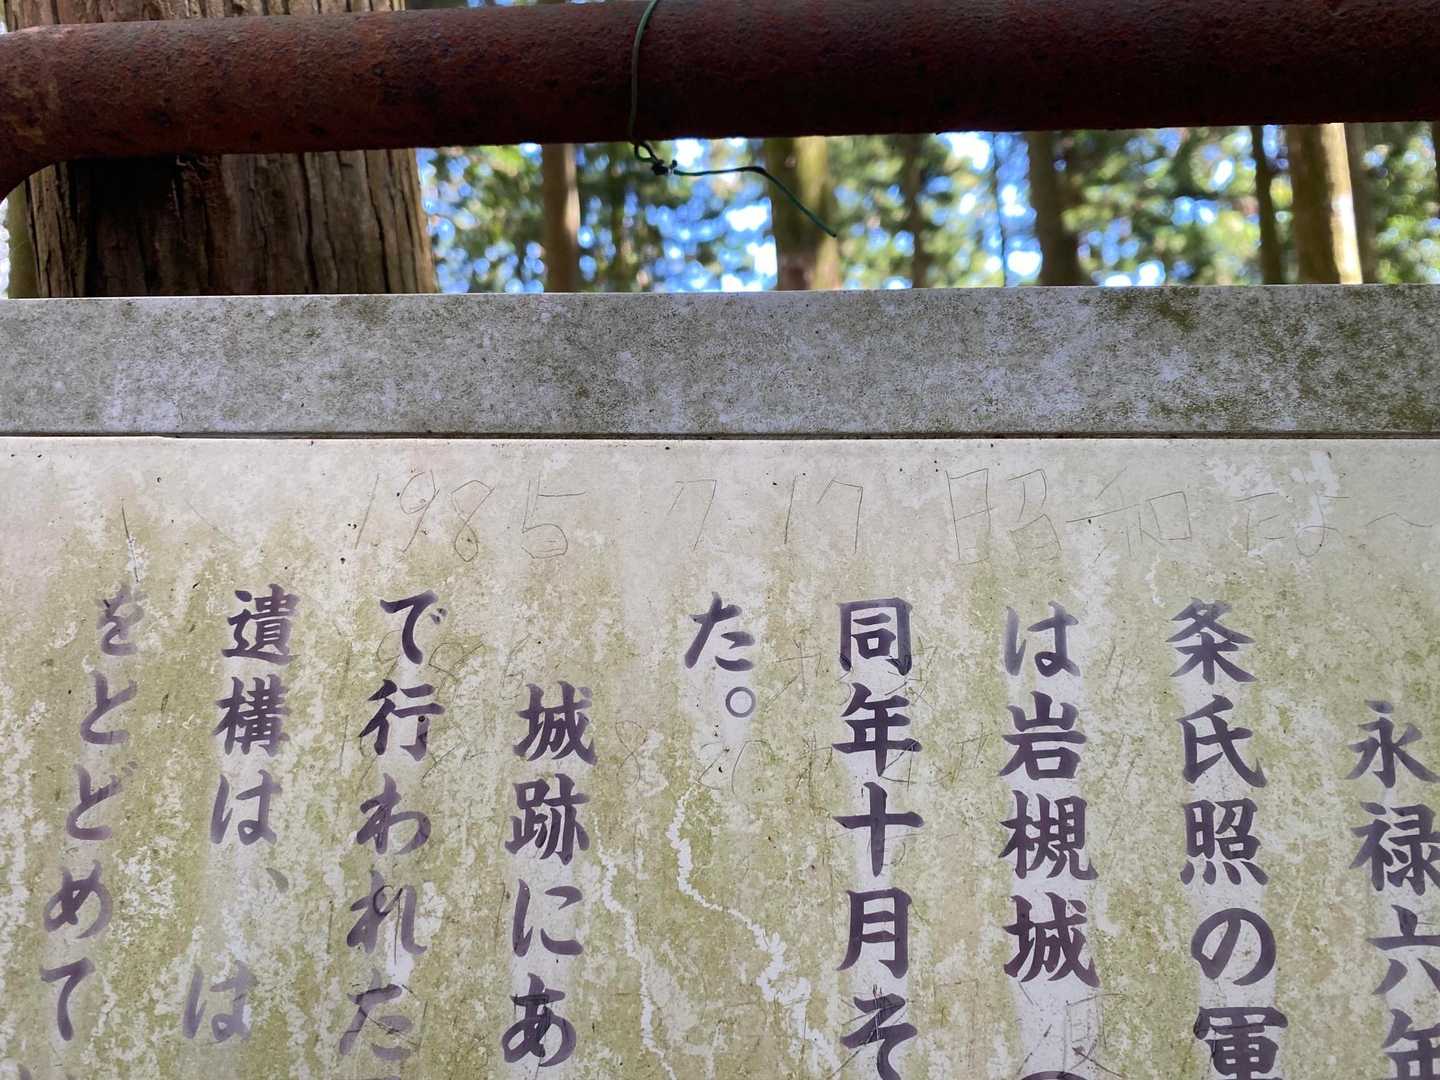 1985 7 17 昭和だよ〜
永禄六年
条氏照の軍
は岩槻城
同年十月そ
た。
城跡にあ
で行われた
遺構は、は
をとどめて